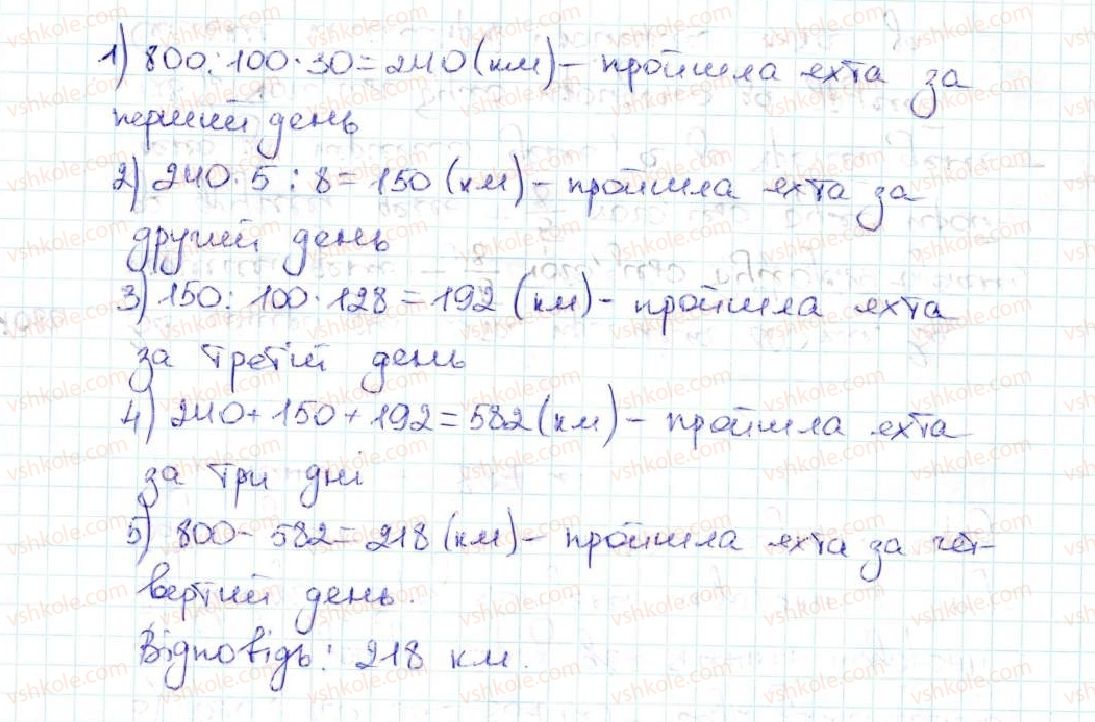 1) 800:100·30=240(км)-пройшла яхта за
перший день
2) 240·5:8=150(км)-пройшла яхта за
другий день
3) 150:100·128=192(км)-пройшла яхта
за третій день
4) 240+150+192=582(км)-пройшла яхта
за три дні
5) 800-582=218(км)-пройшла яхта за чет-
вертий день.
Відповідь: 218 км.